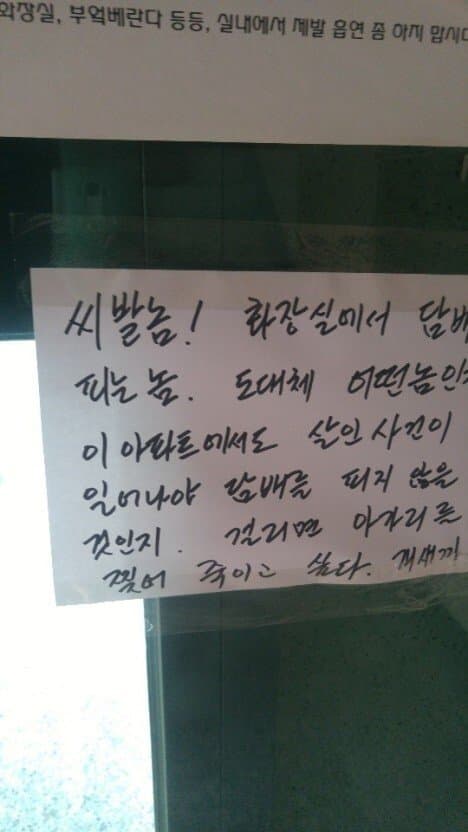 화장실, 부엌베란다 등등, 실내에서 제발 흡연 좀 하지 맙시다
씨발놈! 화장실에서 담배
피는놈. 도대체 어떤놈인지
이 아파트에서도 살인사건이
일어나야 담배를 피지 않을
것인지. 걸리면 아가리를
찢어 죽이고 싶다. 개새끼